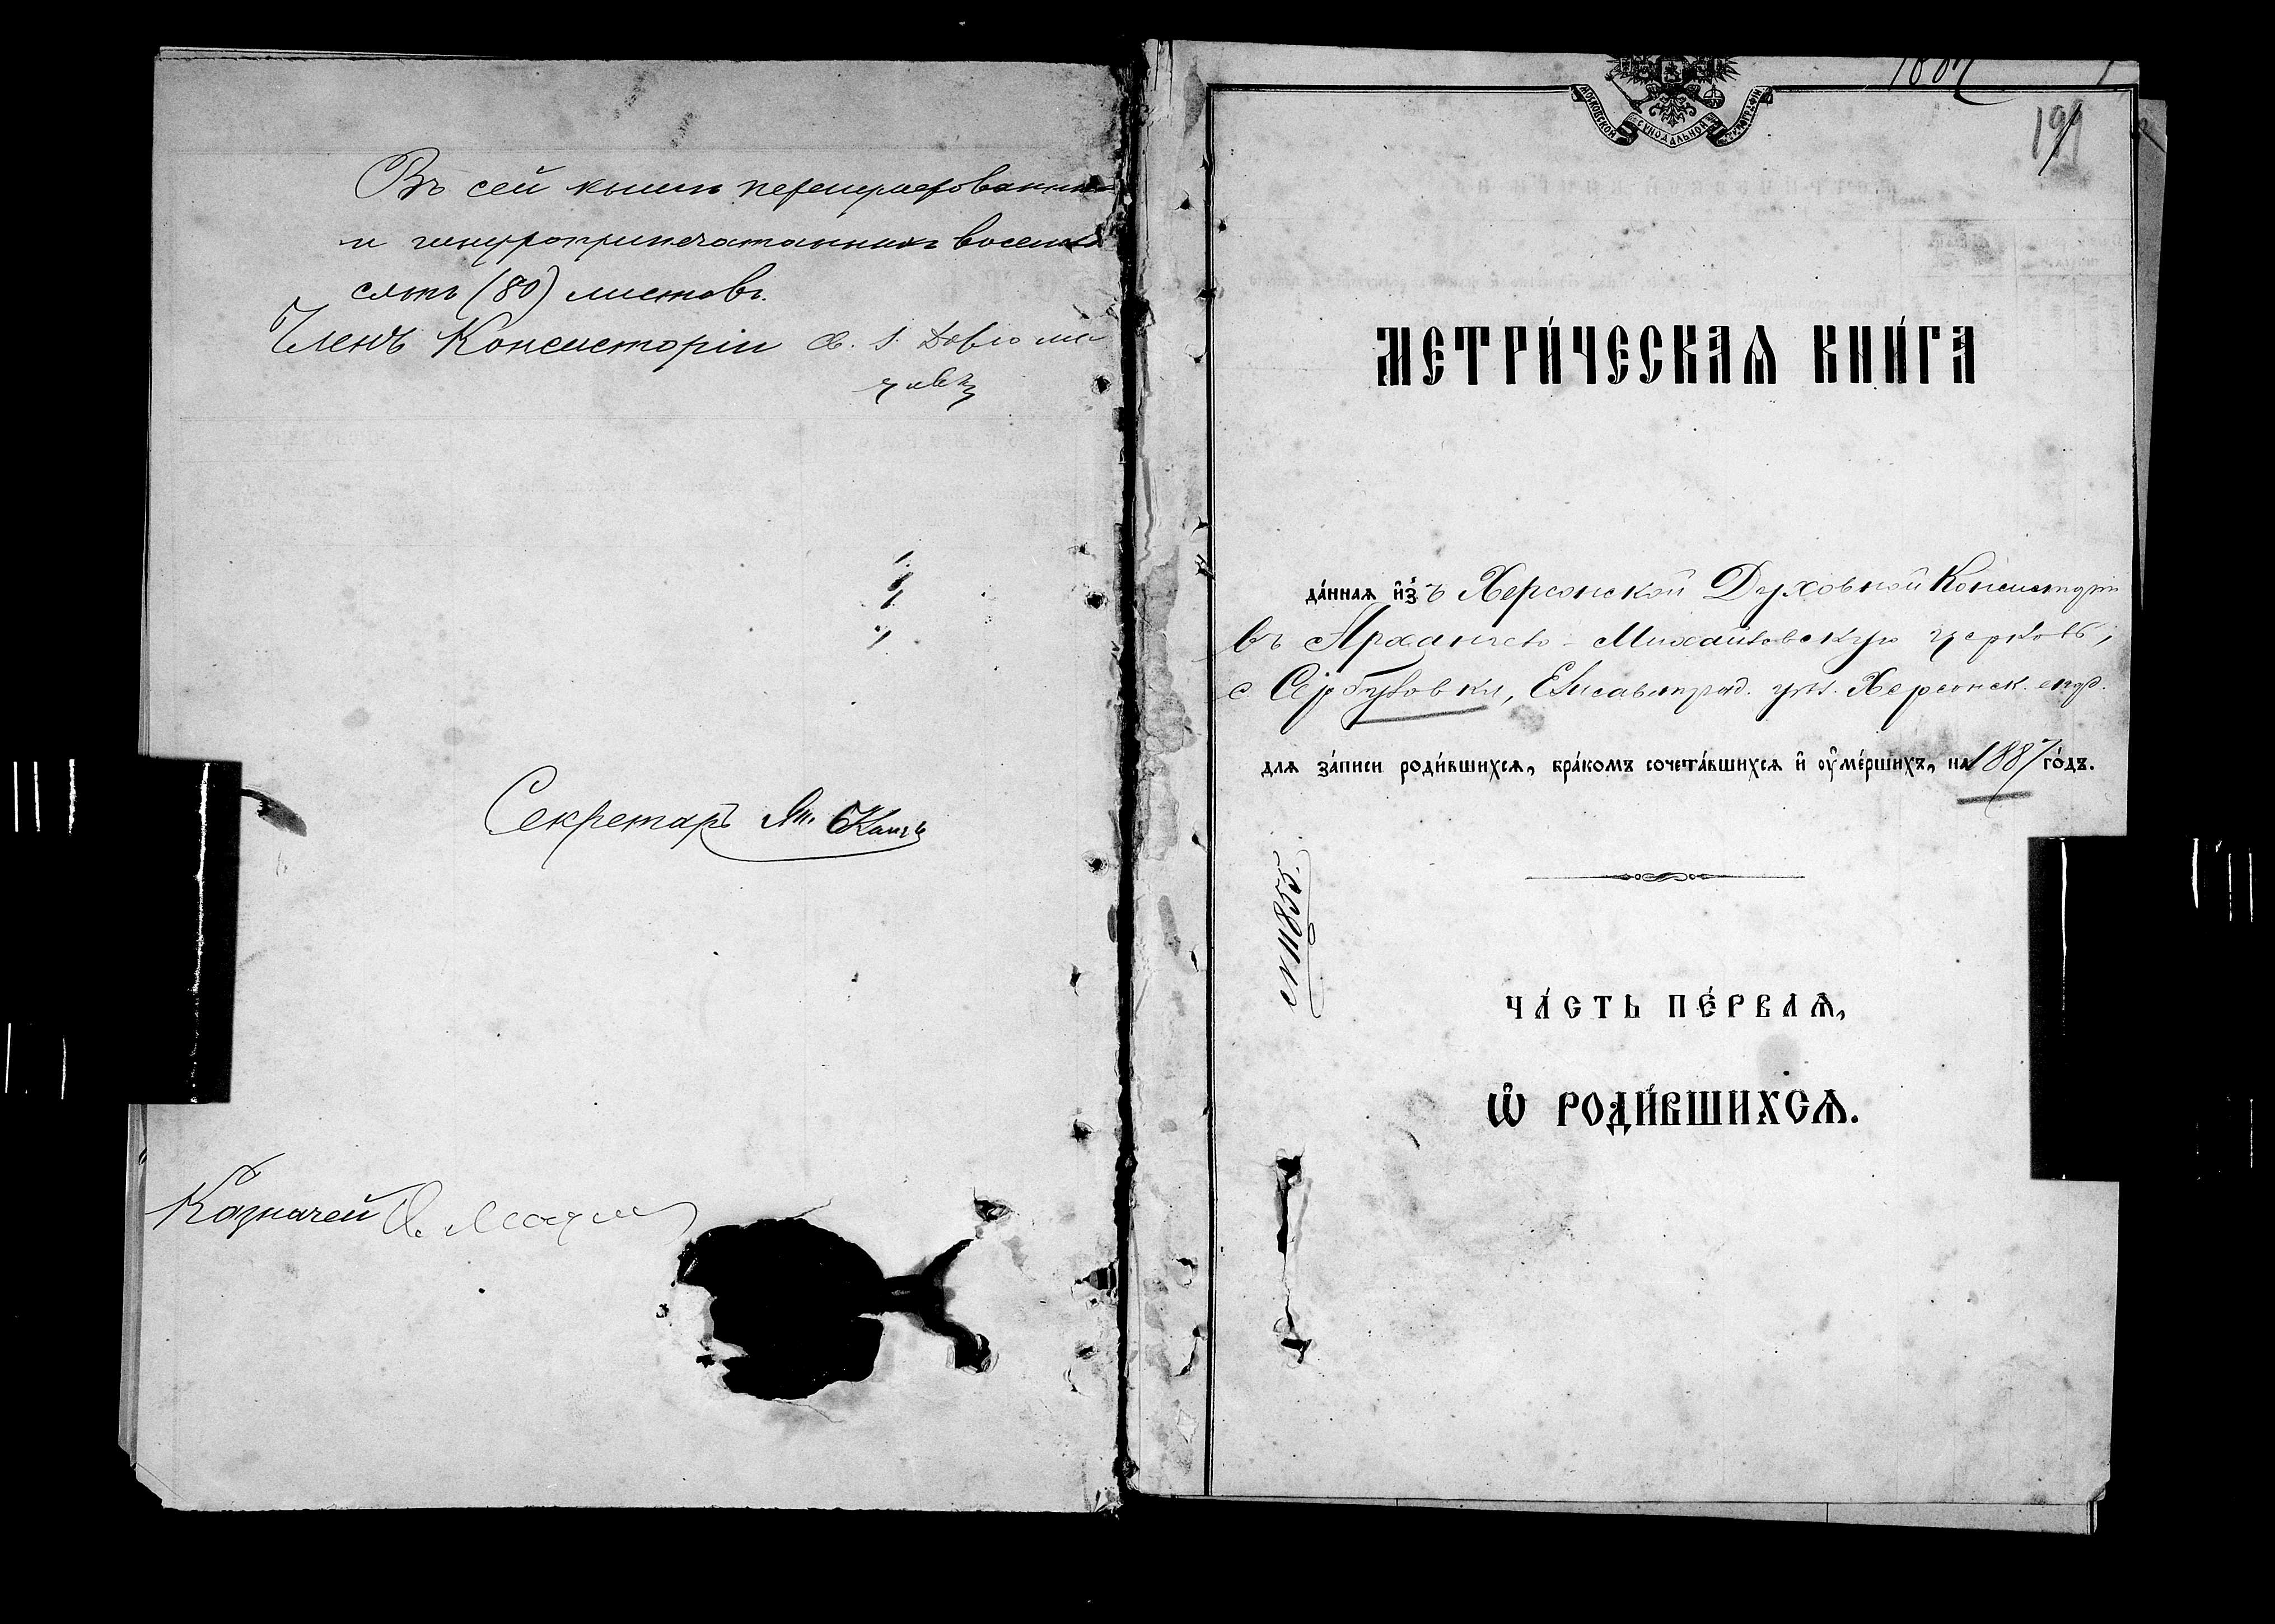 Въ сей книгѣ перенумерованныхъ
и шнуроприпечатанныхъ восемьде
сятъ (80) листовъ.
Членъ Консисторіи св. І.
Секретарь
Казначей
1887
1
МОСКОВСКОЙ СѴНОДАЛЬНОЙ ТИПОГРАФІИ
МЕТРИ́ЧЕСКАѦ КНИ́ГА
да́нная и҆зъ Херсонской Духовной Консисторіи
въ Архангело-Михайловскую церковь,
с. Сербуловки, Елисаветград. уѣз. Херсонск. епар.
для за́писи роди́вшихся, бра́комъ сочета́вшихся и҆ ᲂу҆ме́ршихъ, на 1887 го́дъ.
№ 11855.
ЧА́СТЬ ПЕ́РВАѦ,
Ѡ҆ РОДИ́ВШИХСѦ.